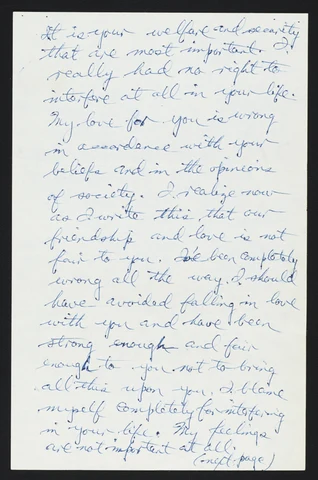 It is your welfare and society
that are most important. I
really had no right to
interfere at all in your life.
My love for you is wrong
in accordance with your
beliefs and in the opinions
of society. I realize now
as I write this that our
friendship and love is not
fair to you. I've been completely
wrong all the way. I should
have avoided falling in love
with you and have been
strong enough and fair
enough to you not to bring
all this upon you. I blame
myself completely for interfering
in your life. My feelings
are not important at all.
(next page)